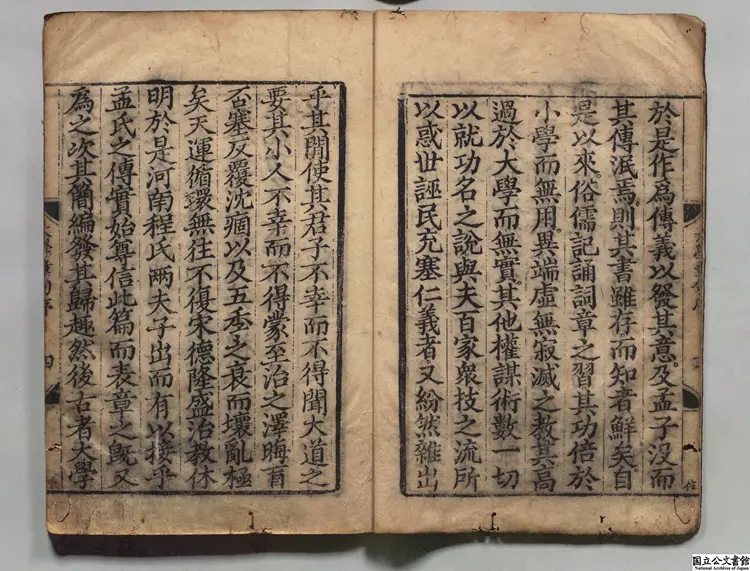 於是作為傳義以發其意。及孟子沒而
其傳泯焉。則其書雖存而知者鮮矣。自
是以來。俗儒記誦詞章之習其功倍於
小學而無用。異端虛無寂滅之教其高
過於大學而無實。其他權謀術數一切
以就功名之說與夫百家衆技之流所
以惑世誣民充塞仁義者又紛然雜出
乎其閒使其君子不幸而不得聞大道之
要其小人不幸而不得蒙至治之澤晦盲
否塞反覆沈痼以及五季之衰而壞亂極
矣天運循環無往不復宋德隆盛治教休
明於是河南程氏兩夫子出而有以接乎
孟氏之傳實始尊信此篇而表章之旣又
爲之次其簡編發其歸趣然後古者大學
四
国立公文書館
National Archives of Japan